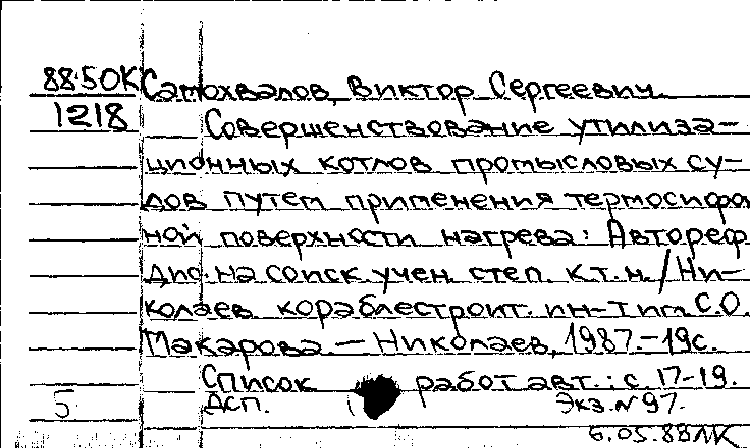 88·50К Самохвалов, Виктор Сергеевич.
1218 Совершенствование утилиза-
ционных котлов промысловых су-
дов путем применения термосифо
ной поверхности нагрева: Автореф
дис. на соиск учен. степ. к.т.н. / Ни-
колаев. кораблестроит. ин-т им. С.О.
Макарова. — Николаев, 1987. - 19с.
Список работ авт.: с. 17-19.
5 ДСП. Экз. № 97.
6.05.88 ЛК